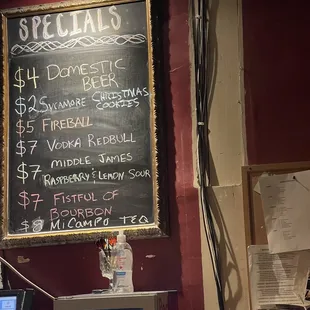 SPECIALS
$4 DOMESTIC
BEER
$2 SYCAMORE CHRISTMAS
COOKIES
$5 FIREBALL
$7 VODKA REDBULL
$7 MIDDLE JAMES
$7 RASPBERRY & LEMON SOUR
$7 FISTFUL OF
BOURBON
$8 MI CAMPO TEQ